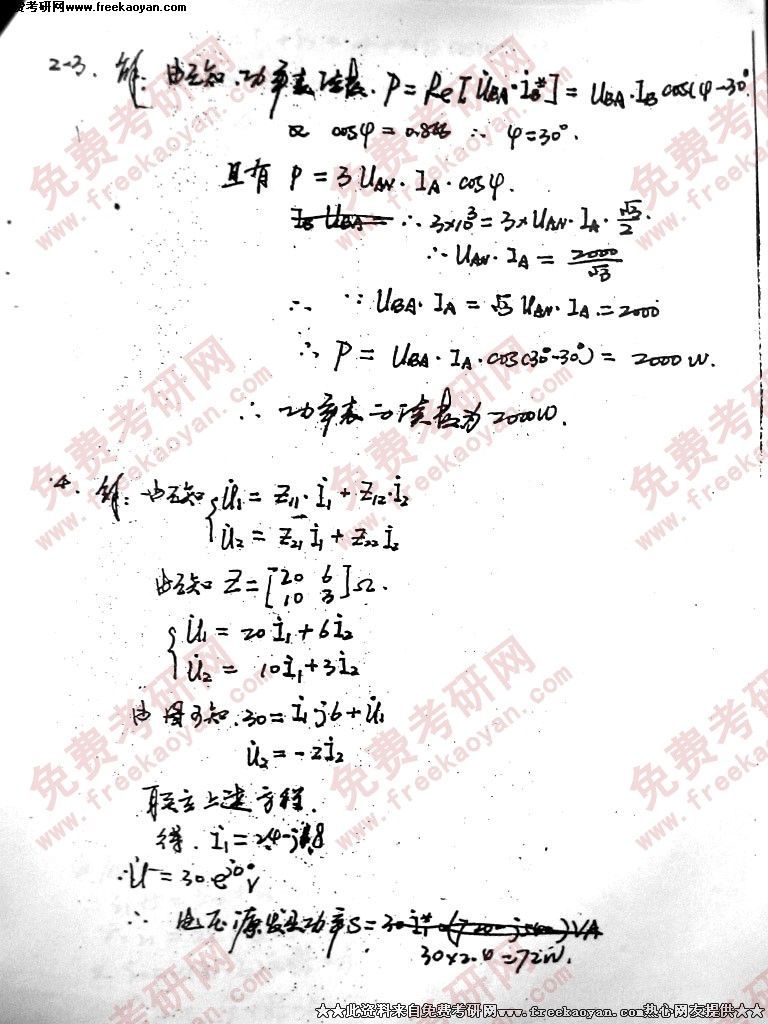 免费考研网
www.freekaoyan.com
2-3. 解: 由已知.功率表读数. P=Re[U̇BA·İB*]=UBA·IB cos(φ-30°
∝ cosφ=0.866 ∴ φ=30°.
且有 P=3UAN·IA·cosφ.
∴ 3×10³=3×UAN·IA·√3/2.
∴ UAN·IA=2000/√3
∴ ∵ UBA·IA=√3 UAN·IA=2000
∴ P=UBA·IA·cos(30°-30°)=2000W.
∴ 功率表的读数为2000W.
·4. 解: 由已知 { U̇1=Z11·İ1+Z12·İ2
U̇2=Z21 İ1+Z22 İ2
由已知 Z=[20 6
10 3]Ω.
{ U̇1=20İ1+6İ2
U̇2=10İ1+3İ2
由图可知.30=İ1 j6+U̇1
U̇2=-2İ2
联立上述方程.
得. İ1=2.4-j1.8
∵ U̇=30e^j0° V
∴ 电压源发出功率S=30İ1*
30×2.4=72W.
★★此资料来自免费考研网www.freekaoyan.com热心网友提供★★